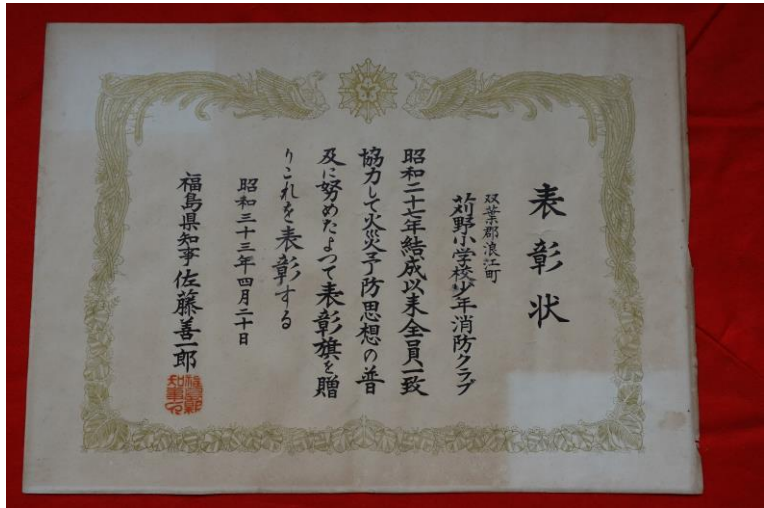 表彰状
双葉郡浪江町
苅野小学校少年消防クラブ
昭和二十七年結成以来全員一致
協力して火災予防思想の普
及に努めたよつて表彰旗を贈
りこれを表彰する
昭和三十三年四月二十日
福島県知事佐藤善一郎